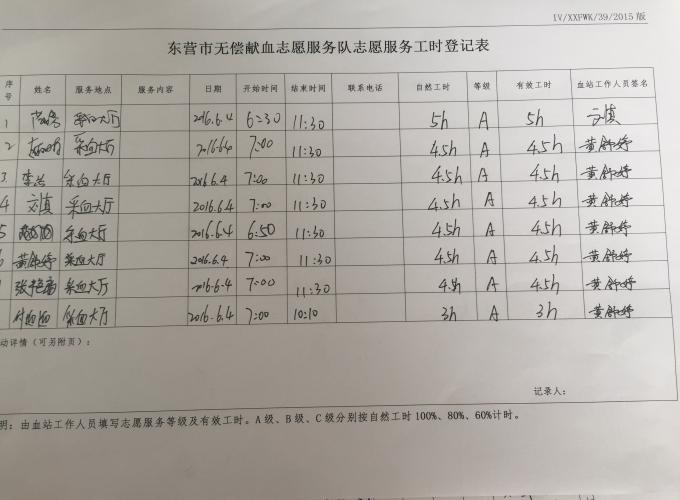 IV/XXFWK/39/2015 版
东营市无偿献血志愿服务队志愿服务工时登记表
序号 姓名 服务地点 服务内容 日期 开始时间 结束时间 联系电话 自然工时 等级 有效工时 血站工作人员签名
1 采血大厅 2016.6.4 6:30 11:30 5h A 5h 刘慎
2 采血大厅 2016.6.4 7:00 11:30 4.5h A 4.5h 黄舒婷
3 李芸 采血大厅 2016.6.4 7:00 11:30 4.5h A 4.5h 黄舒婷
4 刘慎 采血大厅 2016.6.4 7:00 11:30 4.5h A 4.5h 黄舒婷
5 采血大厅 2016.6.4 6:50 11:30 4.5h A 4.5h 黄舒婷
黄舒婷 采血大厅 2016.6.4 7:00 11:30 4.5h A 4.5h 黄舒婷
采血大厅 2016.6.4 7:00 11:30 A 4.5h 黄舒婷
采血大厅 2016.6.4 7:00 10:10 3h A 3h 黄舒婷
动详情（可另附页）：
记录人：
明：由血站工作人员填写志愿服务等级及有效工时。A 级、B 级、C 级分别按自然工时 100%、80%、60%计时。